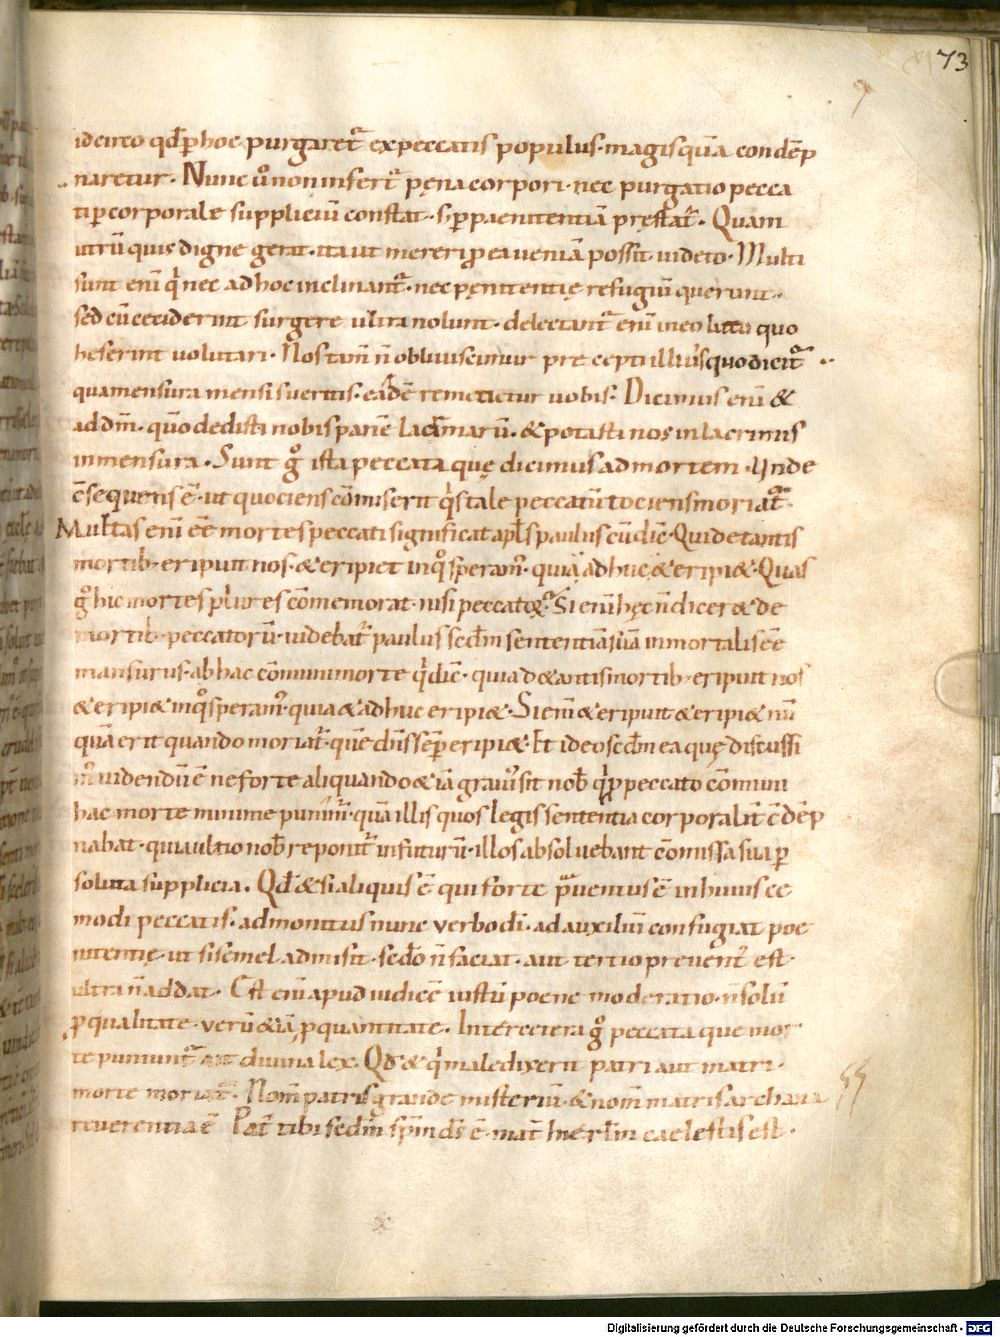 73
idcirco qđ p hoc purgaret᷑ ex peccatis populus · magis quā condēp
naretur · Nunc ů non infert᷑ pęna corpori · nec purgatio pecca
ti p corporale suppliciū constat · s; p paenitentiā pręstat᷑ · Quam
utrū quis digne gerit · ita ut mereri p ea veniā possit · uideto · Multi
sunt eni᷑ q̍ nec ad hoc inclinant᷑ · nec pęnitentię refugiū querunt ·
sed cū ceciderint surgere ultra nolunt · delectant᷑ eni᷑ in eo luto quo
heserint uolutari · Nos tam̄ n̄ obliuiscimur precepti illius quo dicit᷑
qua mensura mensi fueritis · eadē remetietur uobis · Dicimus enī &
ad dn̄m · quō dedisti nobis panē lacrimarū · & potasti nos in lacrimis
in mensura · Sunt g̊ ista peccata quę dicimus ad mortem · Unde
c̄sequens ē · ut quociens cōmiserit q̍s tale peccatū tociens moriat᷑ ·
Multas enī eē mortes peccati significat apl̄s paulus cū dic̄ · Qui de tantis
mortib; eripuit nos · & eripiet in q̊ speram᷒ · quia & adhuc & eripi& · Quas
g̊ hic mortes plures cōmemorat · nisi peccatoꝝ · Si enī hęc n̄ dicer& de
mortib; peccatorū · uidebat᷑ paulus scd̄m sententiā suā inmortalis eē
mansurus · ab hac cōmuni morte q̍ dic̄ · quia de tantis mortib; eripuit nos
& eripi& in q̊ speram᷒ · quia & adhuc eripi& · Si enī & eripuit & eripi& nū
quā erit quando moriat᷑ · quē dn̄s sēp eripi& · Et ideo scd̄m ea quę discussi
m᷒ uidendū ē ne forte aliquando & iā grauius sit nob̄ q̍ p peccato cōmuni
hac morte minime punim᷑ · quā illis quos legis sententia corporalit᷑ cōdēp
nabat · quia ultio nob̄ reponit᷑ in futurū · illos absoluebant cōmissa sua p
soluta supplicia. Qd̄ & si aliquis ē qui forte p̄uentus ē in huiusce
modi peccatis · admonitus nunc verbo dī · ad auxiliū confugiat poe
nitentię · ut si semel admisit · sed̄o n̄ faciat · aut tertio preuent᷒ est ·
ultra n̄ addat · Est enī apud iudicē iustū poene moderatio · n̄ solū
p qualitate · verū & iā p quantitate. Inter cetera g̊ peccata que mor
te puniunt᷑ ait diuina lex. Qd̄ & q̍ maledixerit patri aut matri ·
morte moriat᷑ · Nom̄ patris grande misteriū · & nom̄ matris archana
reuerentia ē Pat᷑ tibi scd̄m sp̄m ds̄ ē · mat᷑ hierl̄m caelestis est ·
Digitalisierung gefördert durch die Deutsche Forschungsgemeinschaft - DFG